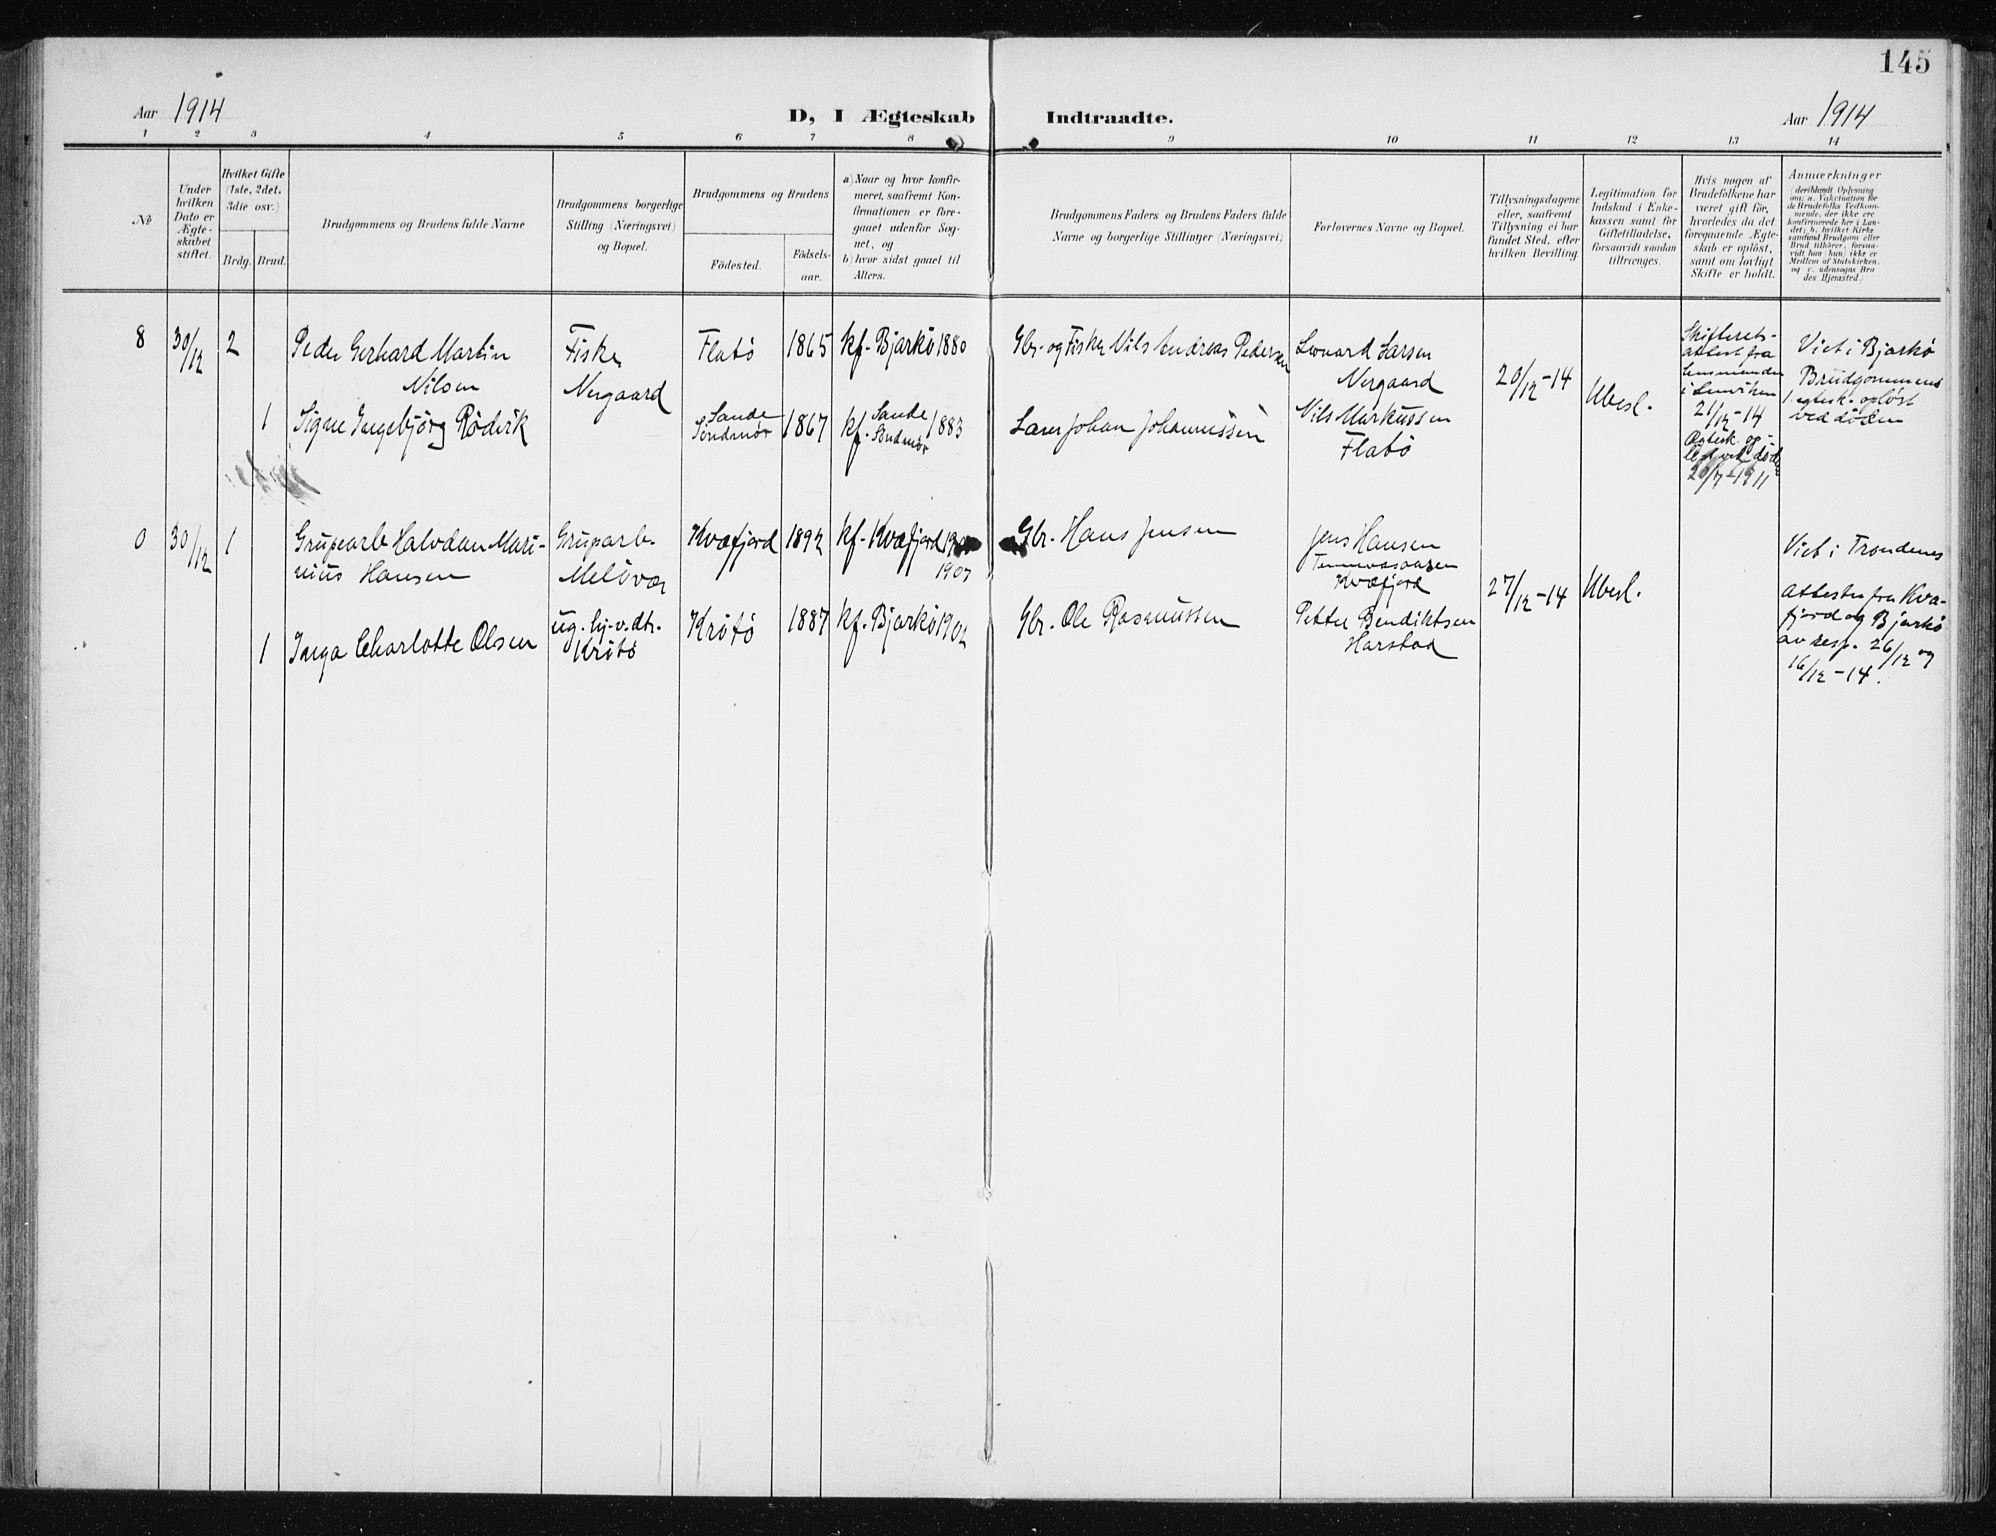 145
Aar 1914
D, I Ægteskab Indtraadte.
Aar 1914
1 2 3 4 5 6 7 8 9 10 11 12 13 14
No
Under
hvilken
Dato er
Ægte-
skabet
stiftet.
Hvilket Gifte
(1ste, 2det.
3die osv.)
Brdg. Brud.
Brudgommens og Brudens fulde Navne
Brudgommens borgerlige
Stilling (Næringsvei)
og Bopæl.
Brudgommens og Brudens
Fødested.
Fødsels-
aar.
a) Naar og hvor konfir-
meret, saafremt Kon-
firmationen er fore-
gaaet udenfor Sog-
net, og
b) hvor sidst gaaet til
Alters.
Brudgommens Faders og Brudens Faders fulde
Navne og borgerlige Stillinger (Næringsvei)
Forlovernes Navne og Bopæl.
Tillysningsdagene
eller, saafremt
Tillysning ei har
fundet Sted, efter
hvilken Bevilling.
Legitimation for
Indskud i Enke-
kassen samt for
Giftetilladelse,
forsaavidt saadan
tiltrænges.
Hvis nogen af
Brudefolkene har
været gift før,
hvorledes da det
foregaaende Ægte-
skab er opløst,
samt om lovligt
Skifte er holdt.
Anmærkninger
(deriblandt Oplysning
om: a. Vakcination for
de Brudefolks Vedkom-
mende, der ikke ere
konfirmerede her i Lan-
det; b. hvilket Kirke-
samfund Brudgom eller
Brud tilhører, forsaa-
vidt han (hun) ikke er
Medlem af Statskirken.
og c. udensogns Bru-
des Hjemsted.)
8 30/12 2 Peder Gerhard Martin
Nilsen
Fisker
Nergaard
Flatö 1865 kf. Bjarkö 1880
Gbr. og Fisker Nils Andreas Pedersen
Leonard Larsen
Nergaard
20/12-14
Ubesl.
Skifterets-
attest fra
Lensmanden
i Lenviken
21/12-14
Ægtesk. op-
löst ved död
20/7-1911
Viet i Bjarkö
Brudgommens
1 egtesk. oplöst
ved döden
1 Signe Ingebjörg Rödvik
Sande
Söndmör 1867 kf. Sande
Söndmör 1883
Lars Johan Johannessen
Nils Markussen
Flatö
0 30/12 1 Grupearb Halvdan Mari-
nius Hansen
Gruparb.
Meløvær
Kvæfjord 1892 kf. Kvæfjord
1907
Gbr. Hans Jensen
Jens Hansen
Kvæfjord
27/12-14
Ubesl.
Viet i Trondenes
Attester fra Kvæ-
fjord og Bjarkö
av resp. 26/12 og
16/12-14.
1 Inga Charlotte Olsen
ug. hj. v. dtr.
Krötö
Krötö 1887 kf. Bjarkö 1902
Gbr. Ole Rasmussen
Petter Bendiktsen
Harstad